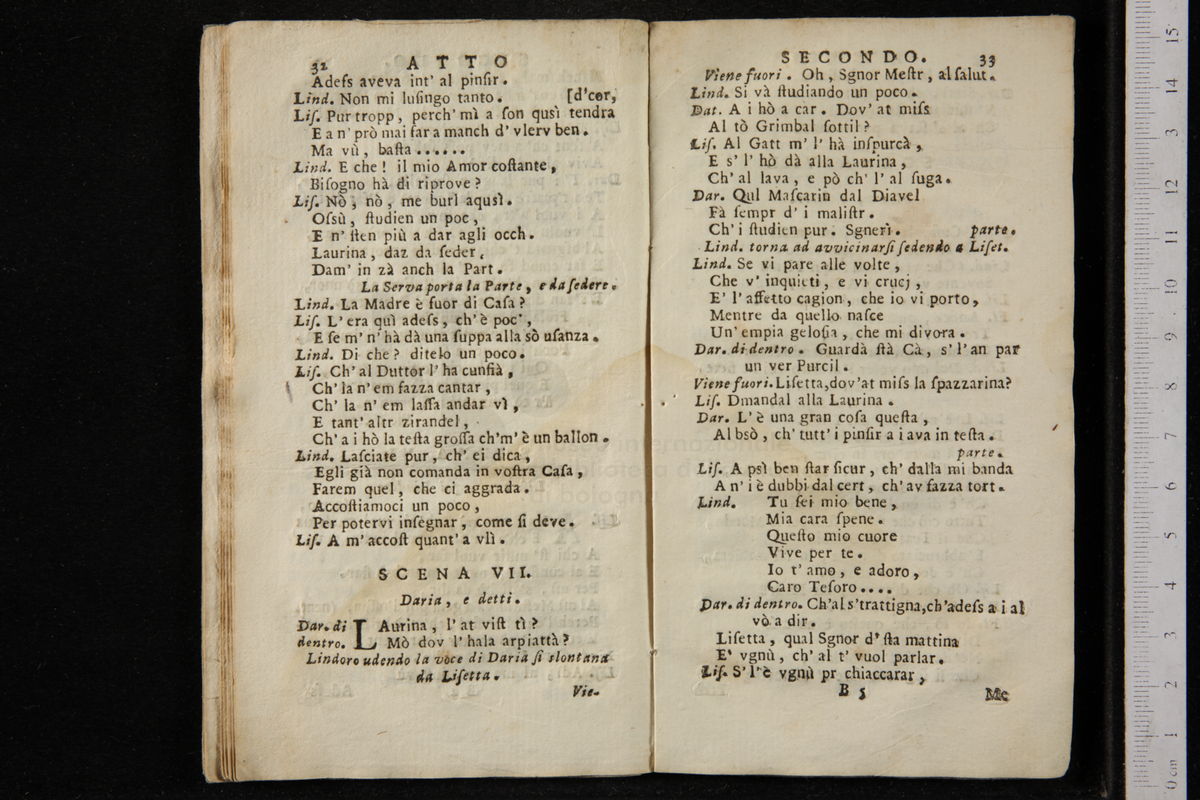 32 ATTO
Adeſs aveva int' al pinſir.
Lind. Non mi luſingo tanto. [d'cor,
Liſ. Pur tropp, perch' mì a ſon qusì tendra
E a n' prò mai far a manch d' vlerv ben.
Ma vù, baſta ......
Lind. E che! il mio Amor coſtante,
Biſogno hà di riprove?
Liſ. Nò, nò, me burl aqusì.
Oſsù, ſtudien un poc,
E n' ſten più a dar agli occh.
Laurina, daz da ſeder,
Dam' in zà anch la Part.
La Serva porta la Parte, e da ſedere.
Lind. La Madre è fuor di Caſa?
Liſ. L' era quì adeſs, ch' è poc',
E ſe m' n' hà dà una ſuppa alla sò uſanza.
Lind. Di che? ditelo un poco.
Liſ. Ch' al Duttor l' ha cunfià,
Ch' la n' em fazza cantar,
Ch' la n' em laſſa andar vì,
E tant' altr zirandel,
Ch' a i hò la teſta groſſa ch' m' è un ballon.
Lind. Laſciate pur, ch' ei dica,
Egli già non comanda in voſtra Caſa,
Farem quel, che ci aggrada.
Accoſtiamoci un poco,
Per potervi inſegnar, come ſi deve.
Liſ. A m' accoſt quant' a vlì.
SCENA VII.
Daria, e detti.
Dar. di LAurina, l' at viſt tì?
dentro. Mò dov l' hala arpiattà?
Lindoro udendo la voce di Daria ſi slontana
da Liſetta.
Vie-
SECONDO. 33
Viene fuori. Oh, Sgnor Meſtr, al ſalut.
Lind. Si và ſtudiando un poco.
Dat. A i hò a car. Dov' at miſs
Al tò Grimbal ſottil?
Liſ. Al Gatt m' l' hà inſpurcà,
E s' l' hò dà alla Laurina,
Ch' al lava, e pò ch' l' al ſuga.
Dar. Qul Maſcarin dal Diavel
Fà ſempr d' i maliſtr.
Ch' i ſtudien pur. Sgnerì. parte.
Lind. torna ad avvicinarſi ſedendo a Liſet.
Lind. Se vi pare alle volte,
Che v' inquieti, e vi crucj,
E' l' affetto cagion, che io vi porto,
Mentre da quello naſce
Un' empia geloſia, che mi divora.
Dar. di dentro. Guardà ſtà Cà, s' l' an par
un ver Purcil.
Viene fuori. Liſetta, dov' at miſs la ſpazzarina?
Liſ. Dmandal alla Laurina.
Dar. L' è una gran coſa queſta,
Al bsò, ch' tutt' i pinſir a i ava in teſta.
parte.
Liſ. A psì ben ſtar ſicur, ch' dalla mi banda
A n' i è dubbi dal cert, ch' av fazza tort.
Lind. Tu ſei mio bene,
Mia cara ſpene.
Queſto mio cuore
Vive per te.
Io t' amo, e adoro,
Caro Teſoro....
Dar. di dentro. Ch' al s' trattigna, ch' adeſs a i al
vò a dir.
Liſetta, qual Sgnor d' ſta mattina
E' vgnù, ch' al t' vuol parlar.
Liſ. S' l' è vgnù pr chiaccarar,
B 5 Me